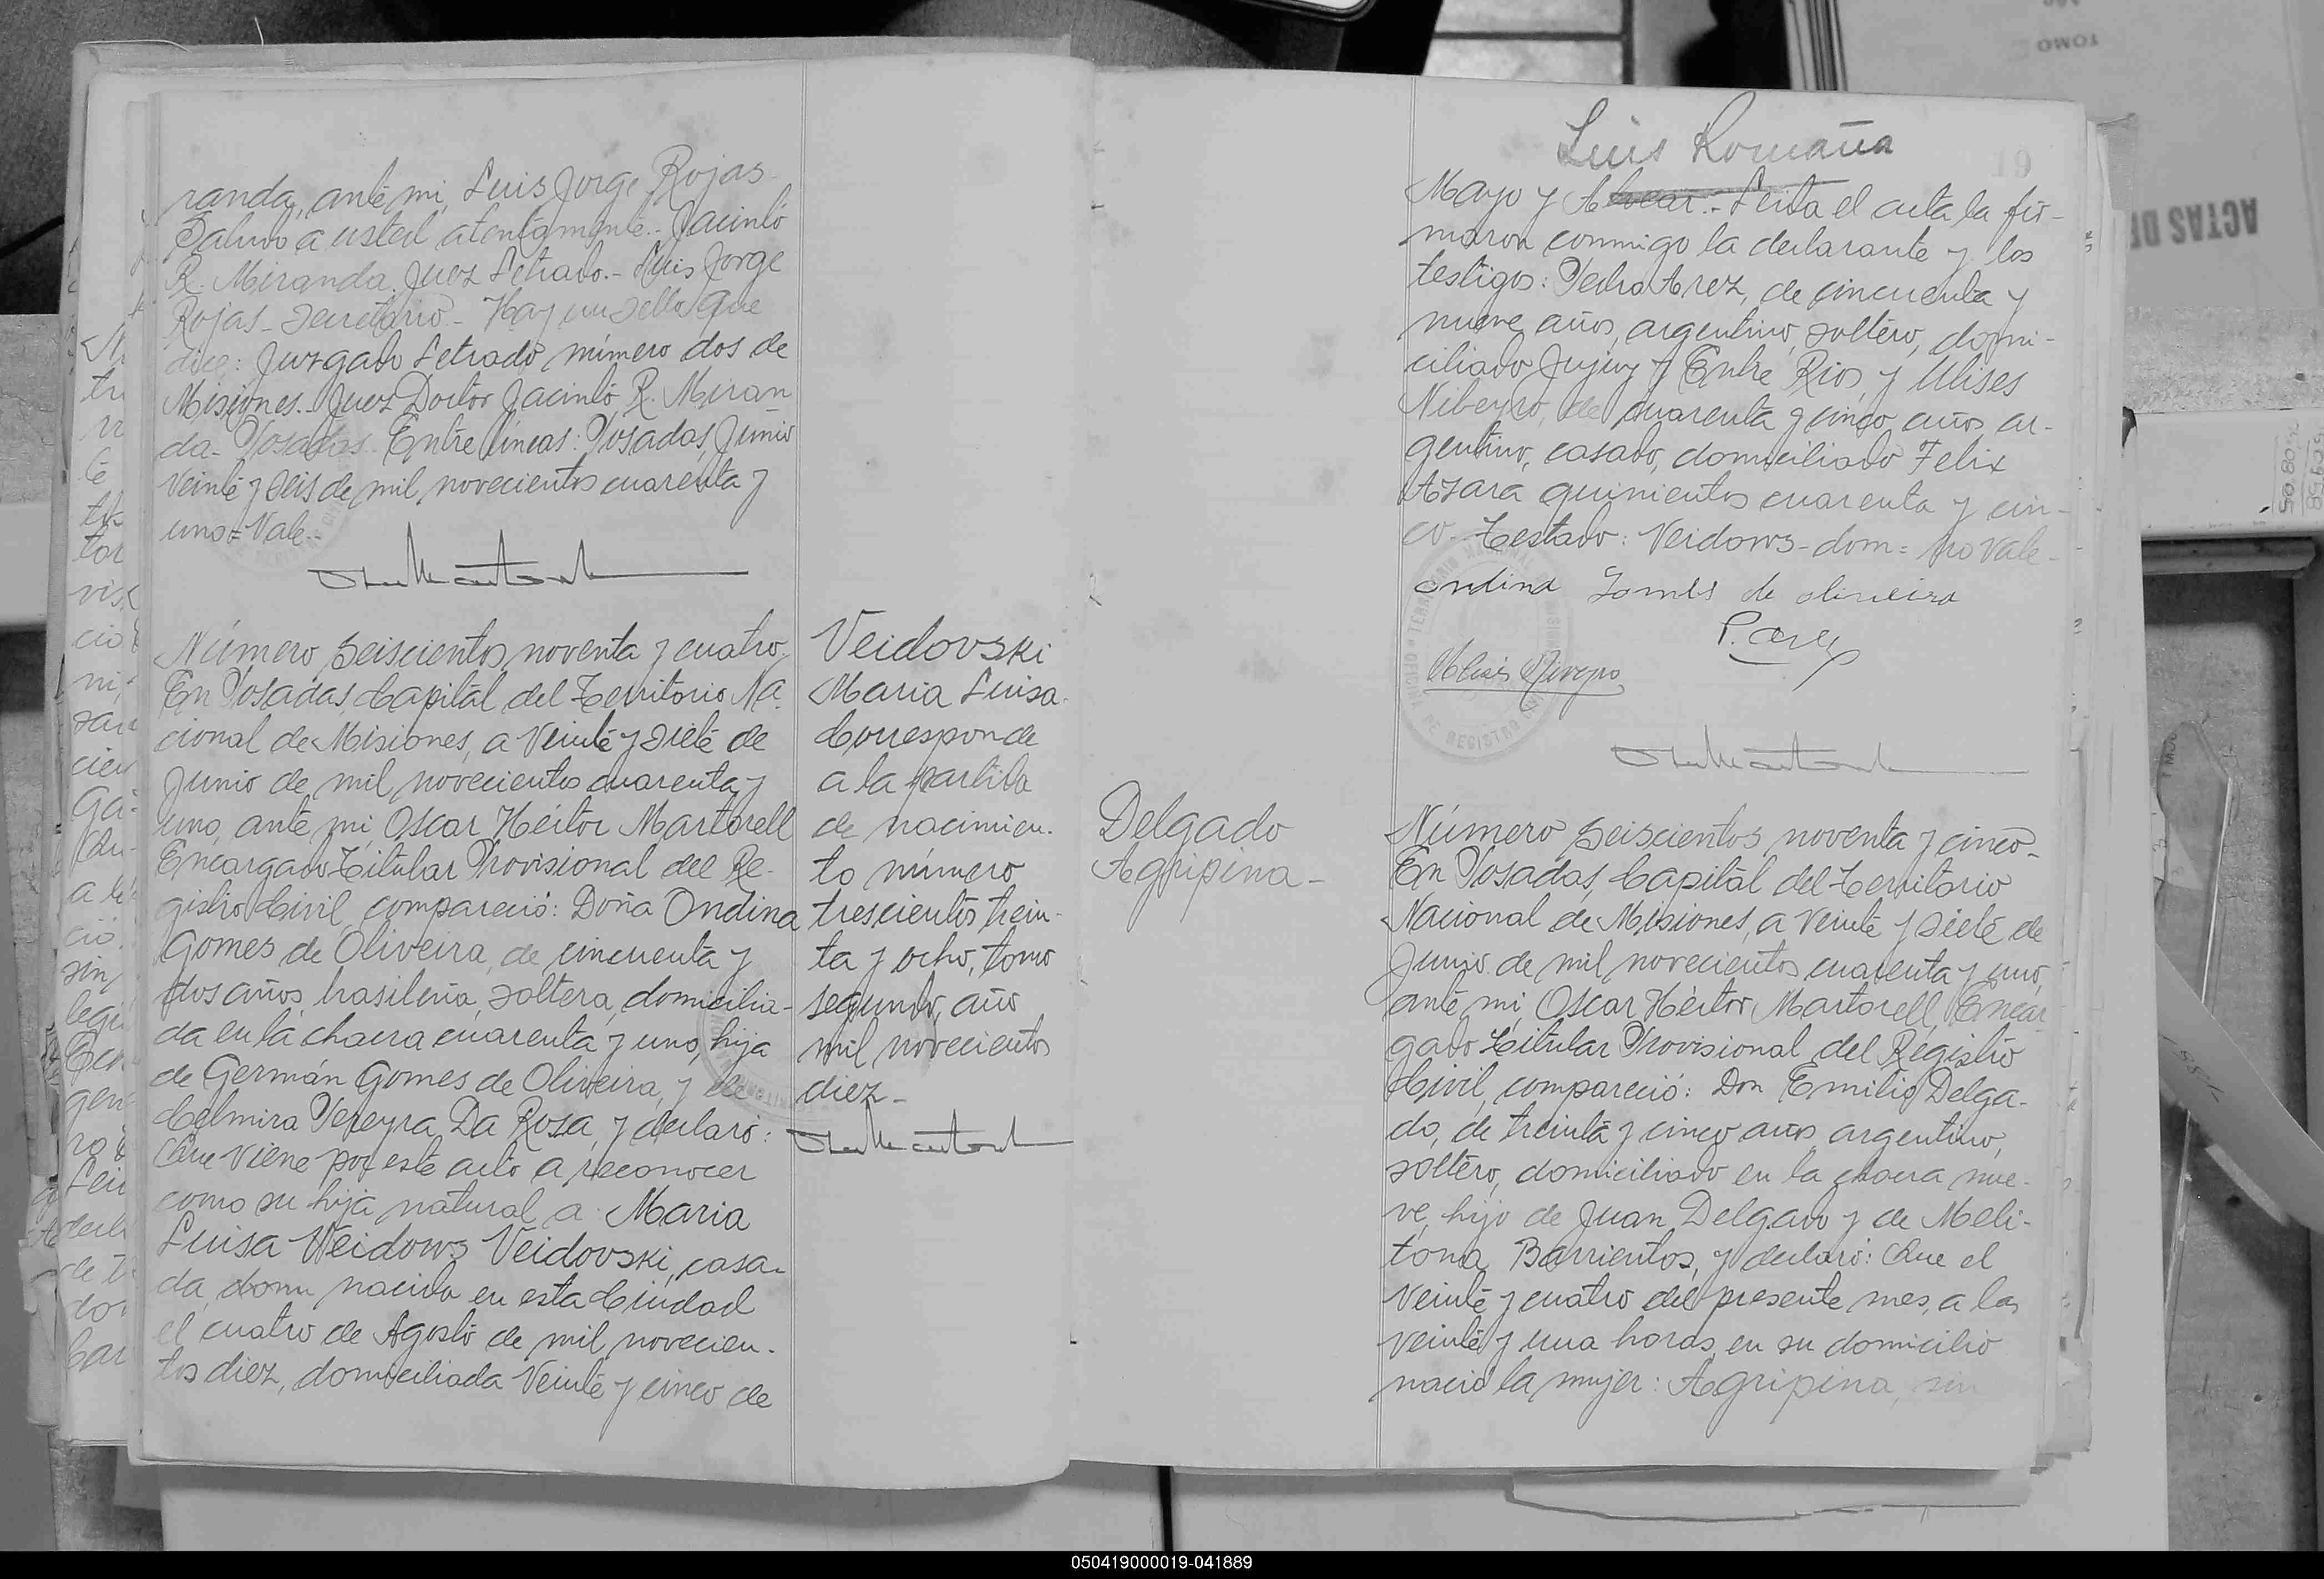 randa, ante mi, Luis Jorge Rojas.
Saludo a usted atentamente.- Jacinto
R. Miranda. Juez Letrado.- Luis Jorge
Rojas - Secretario - Hay un sello que
dice: Juzgado Letrado número dos de
Misiones.- Juez Doctor Jacinto R. Miran
da- Posadas. Entre líneas: Posadas, Junio
veinte y seis de mil novecientos cuarenta y
uno = Vale.-
Número seiscientos noventa y cuatro,
En Posadas, Capital del Territorio Na.
cional de Misiones, a veinte y siete de
Junio de mil novecientos cuarenta y
uno, ante mi, Oscar Héctor Martorell
Encargado Titular Provisional del Re-
gistro Civil, compareció: Doña Ondina
Gomes de Oliveira, de cincuenta y
dos años, brasileña, soltera, domicilia-
da en la chacra cuarenta y uno, hija
de Germán Gomes de Oliveira, y de
Celmira Pereyra Da Rosa, y declaró:
Que viene por este acto a reconocer
como su hija natural a: Maria
Luisa Veidows Veidovski, casa-
da, dom nacida en esta Ciudad
el cuatro de Agosto de mil novecien-
tos diez, domiciliada Veinte y cinco de
Veidovski
Maria Luisa.
Corresponde
a la partida
de nacimien.
to número
trescientos trein-
ta y ocho, tomo
segundo, año
mil novecientos
diez-
Luis Romaña
19
Mayo y Alvear.- Leida el acta la fir-
maron conmigo la declarante y los
testigos: Pedro Arez, de cincuenta y
nueve años, argentino, soltero, domi-
ciliado Jujuy y Entre Rios, y Ulises
Niveyro, de cuarenta y cinco años, ar-
gentino, casado, domiciliado Felix
Azara quinientos cuarenta y cin-
co- Testado: Veidows-dom= No Vale-
Ondina Gomes de oliveira
P. Arez
Ulises Niveyro
Delgado
Agripina-
Número seiscientos noventa y cinco-
En Posadas, Capital del Territorio
Nacional de Misiones, a veinte y siete de
Junio de mil novecientos cuarenta y uno,
ante mi, Oscar Héctor Martorell, Encar
gado Titular Provisional del Registro
Civil, compareció: Don Emilio Delga-
do, de treinta y cinco años, argentino,
soltero, domiciliado en la chacra nue-
ve, hijo de Juan Delgado y de Meli-
tona Barrientos, y declaró: Que el
veinte y cuatro del presente mes, a las
veinte y una horas, en su domicilio
nació la mujer: Agripina, sin
TOMO
ACTAS DE
050419000019-041889